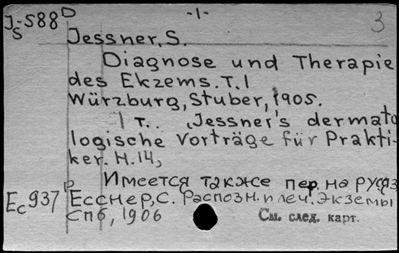 J-588 D -1- 3
S
Jessner, S.
Diagnose und Therapie
des Ekzems. T. I
Würzburg, Stuber, 1905.
1 т. Jessner's dermato
logische Vorträge für Prakti-
ker. H.14,
Имеется также пер. на русяз
Ес937 р Есснер, С. Распозн. и леч. экземы
СПб, 1906 См. след. карт.